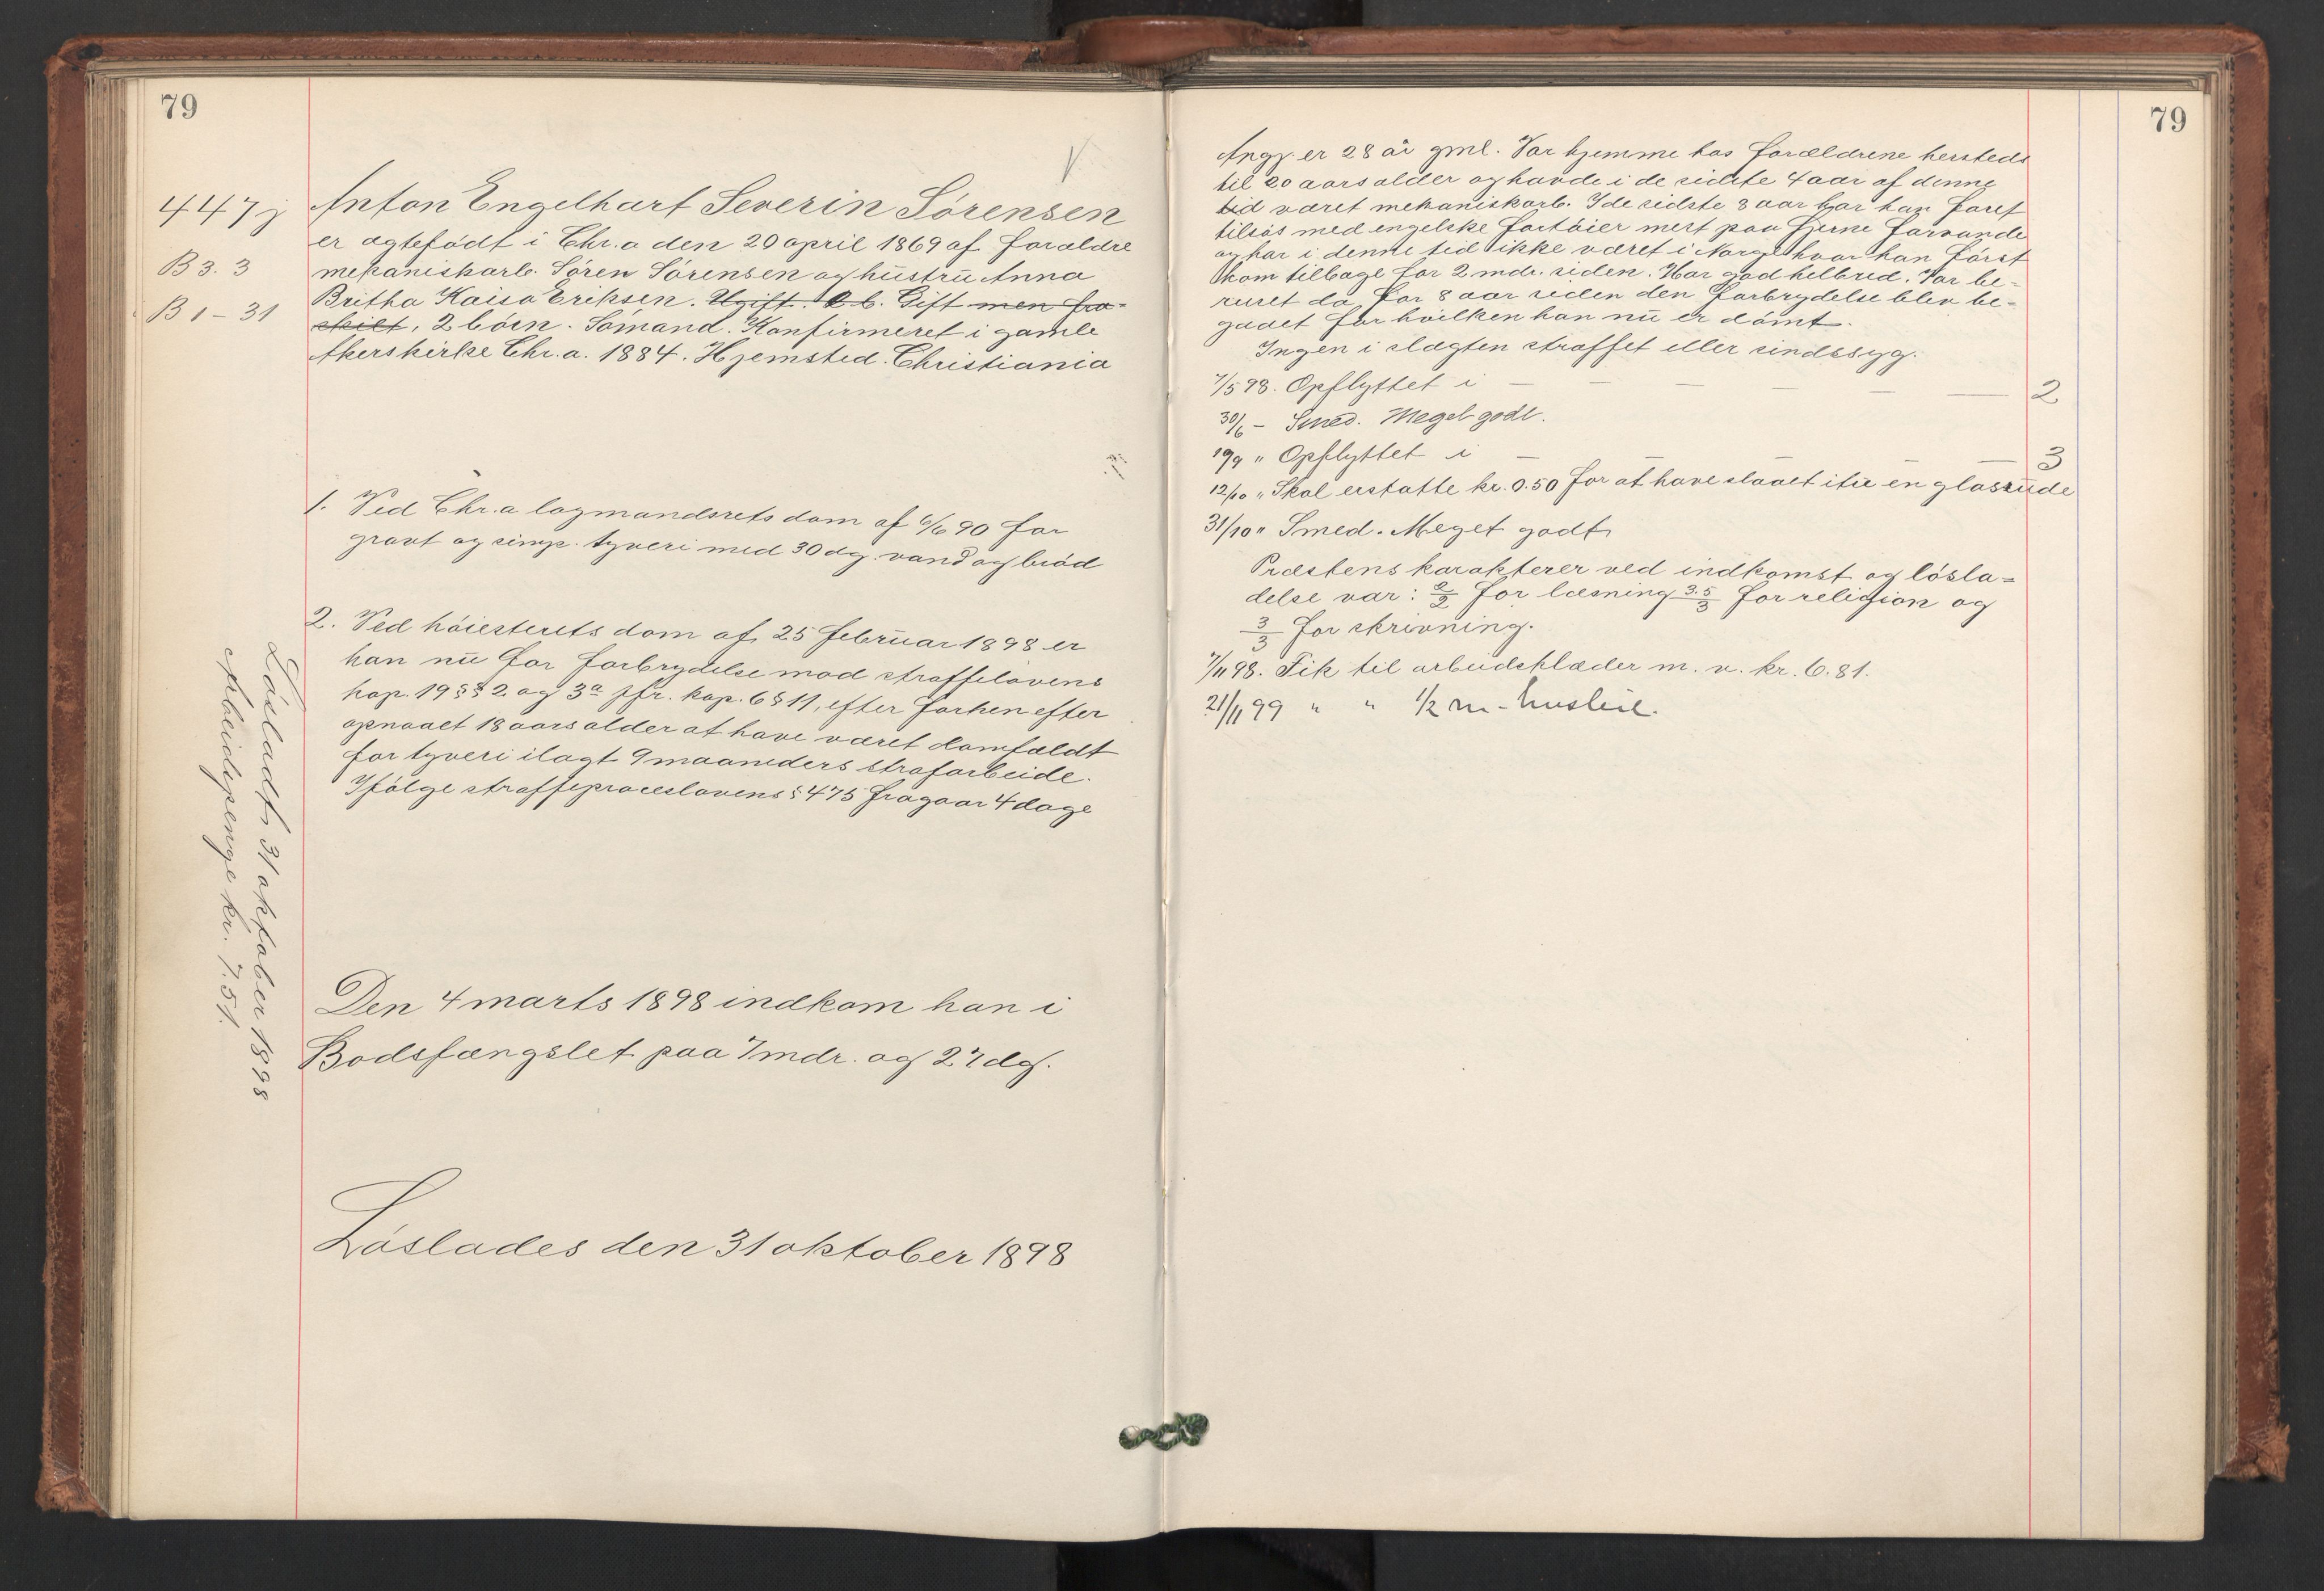 79
447j
B 3. 3
B 1 - 31
Anton Engelhart Severin Sörensen
er ægtefödt i Chr.a den 20 april 1869 af forældre
mekaniskarb. Sören Sörensen og hustru Anna
Britha Kaisa Eriksen. Ugift. 0. b. Gift men fra-
skilt, 2 börn. Sömand. Konfirmeret i gamle
Akerskirke Chr.a. 1884. Hjemsted. Christiania
1. Ved Chr.a lagmandsrets dom af 6/6 90 for
grovt og simp. tyveri med 30 dg. vand og bröd
2. Ved höiesterets dom af 25 februar 1898 er
han nu for forbrydelse mod straffelovens
kap. 19 §§ 2 og 3a jfr. kap. 6 § 11, efter forhen efter
opnaaet 18 aars alder at have været domfældt
for tyveri ilagt 9 maaneders strafarbeide.
Ifölge straffeproceslovens § 475 fragaar 4 dage
Den 4 marts 1898 indkom han i
Bodsfængslet paa 7 mdr. og 27 dg.
Löslades den 31 oktober 1898
Lösladt 31 oktober 1898
Arbeidspenge kr. 7.51.
79
Angj. er 28 år gml. Var hjemme hos forældrene hersteds
til 20 aars alder og havde i de sidste 4 aar af denne
tid været mekaniskarb. I de sidste 8 aar har han faret
tilsös med engelske fartöier mest paa fjerne farvande
og har i denne tid ikke været i Norge hvor han först
kom tilbage for 2 mdr. siden. Har god helbred. Var be-
ruset da for 8 aar siden den forbrydelse blev be-
gaaet for hvilken han nu er dömt.
Ingen i slægten straffet eller sindssyg.
7/5 98. Opflyttet i — — — — — — 2
30/6 - Smed. Meget godt.
19/9 " Opflyttet i — — — — — 3
12/10 " Skal erstatte kr. 0.50 for at have slaaet itu en glasrude
31/10 " Smed. Meget godt
Præstens karakterer ved indkomst og lösla-
delse var: 2/2 for læsning 3.5/3 for religion og
3/3 for skrivning.
7/11 98. Fik til arbeidsklæder m. v. kr. 6.81.
21/11 99 " " 1/2 m - husleie.